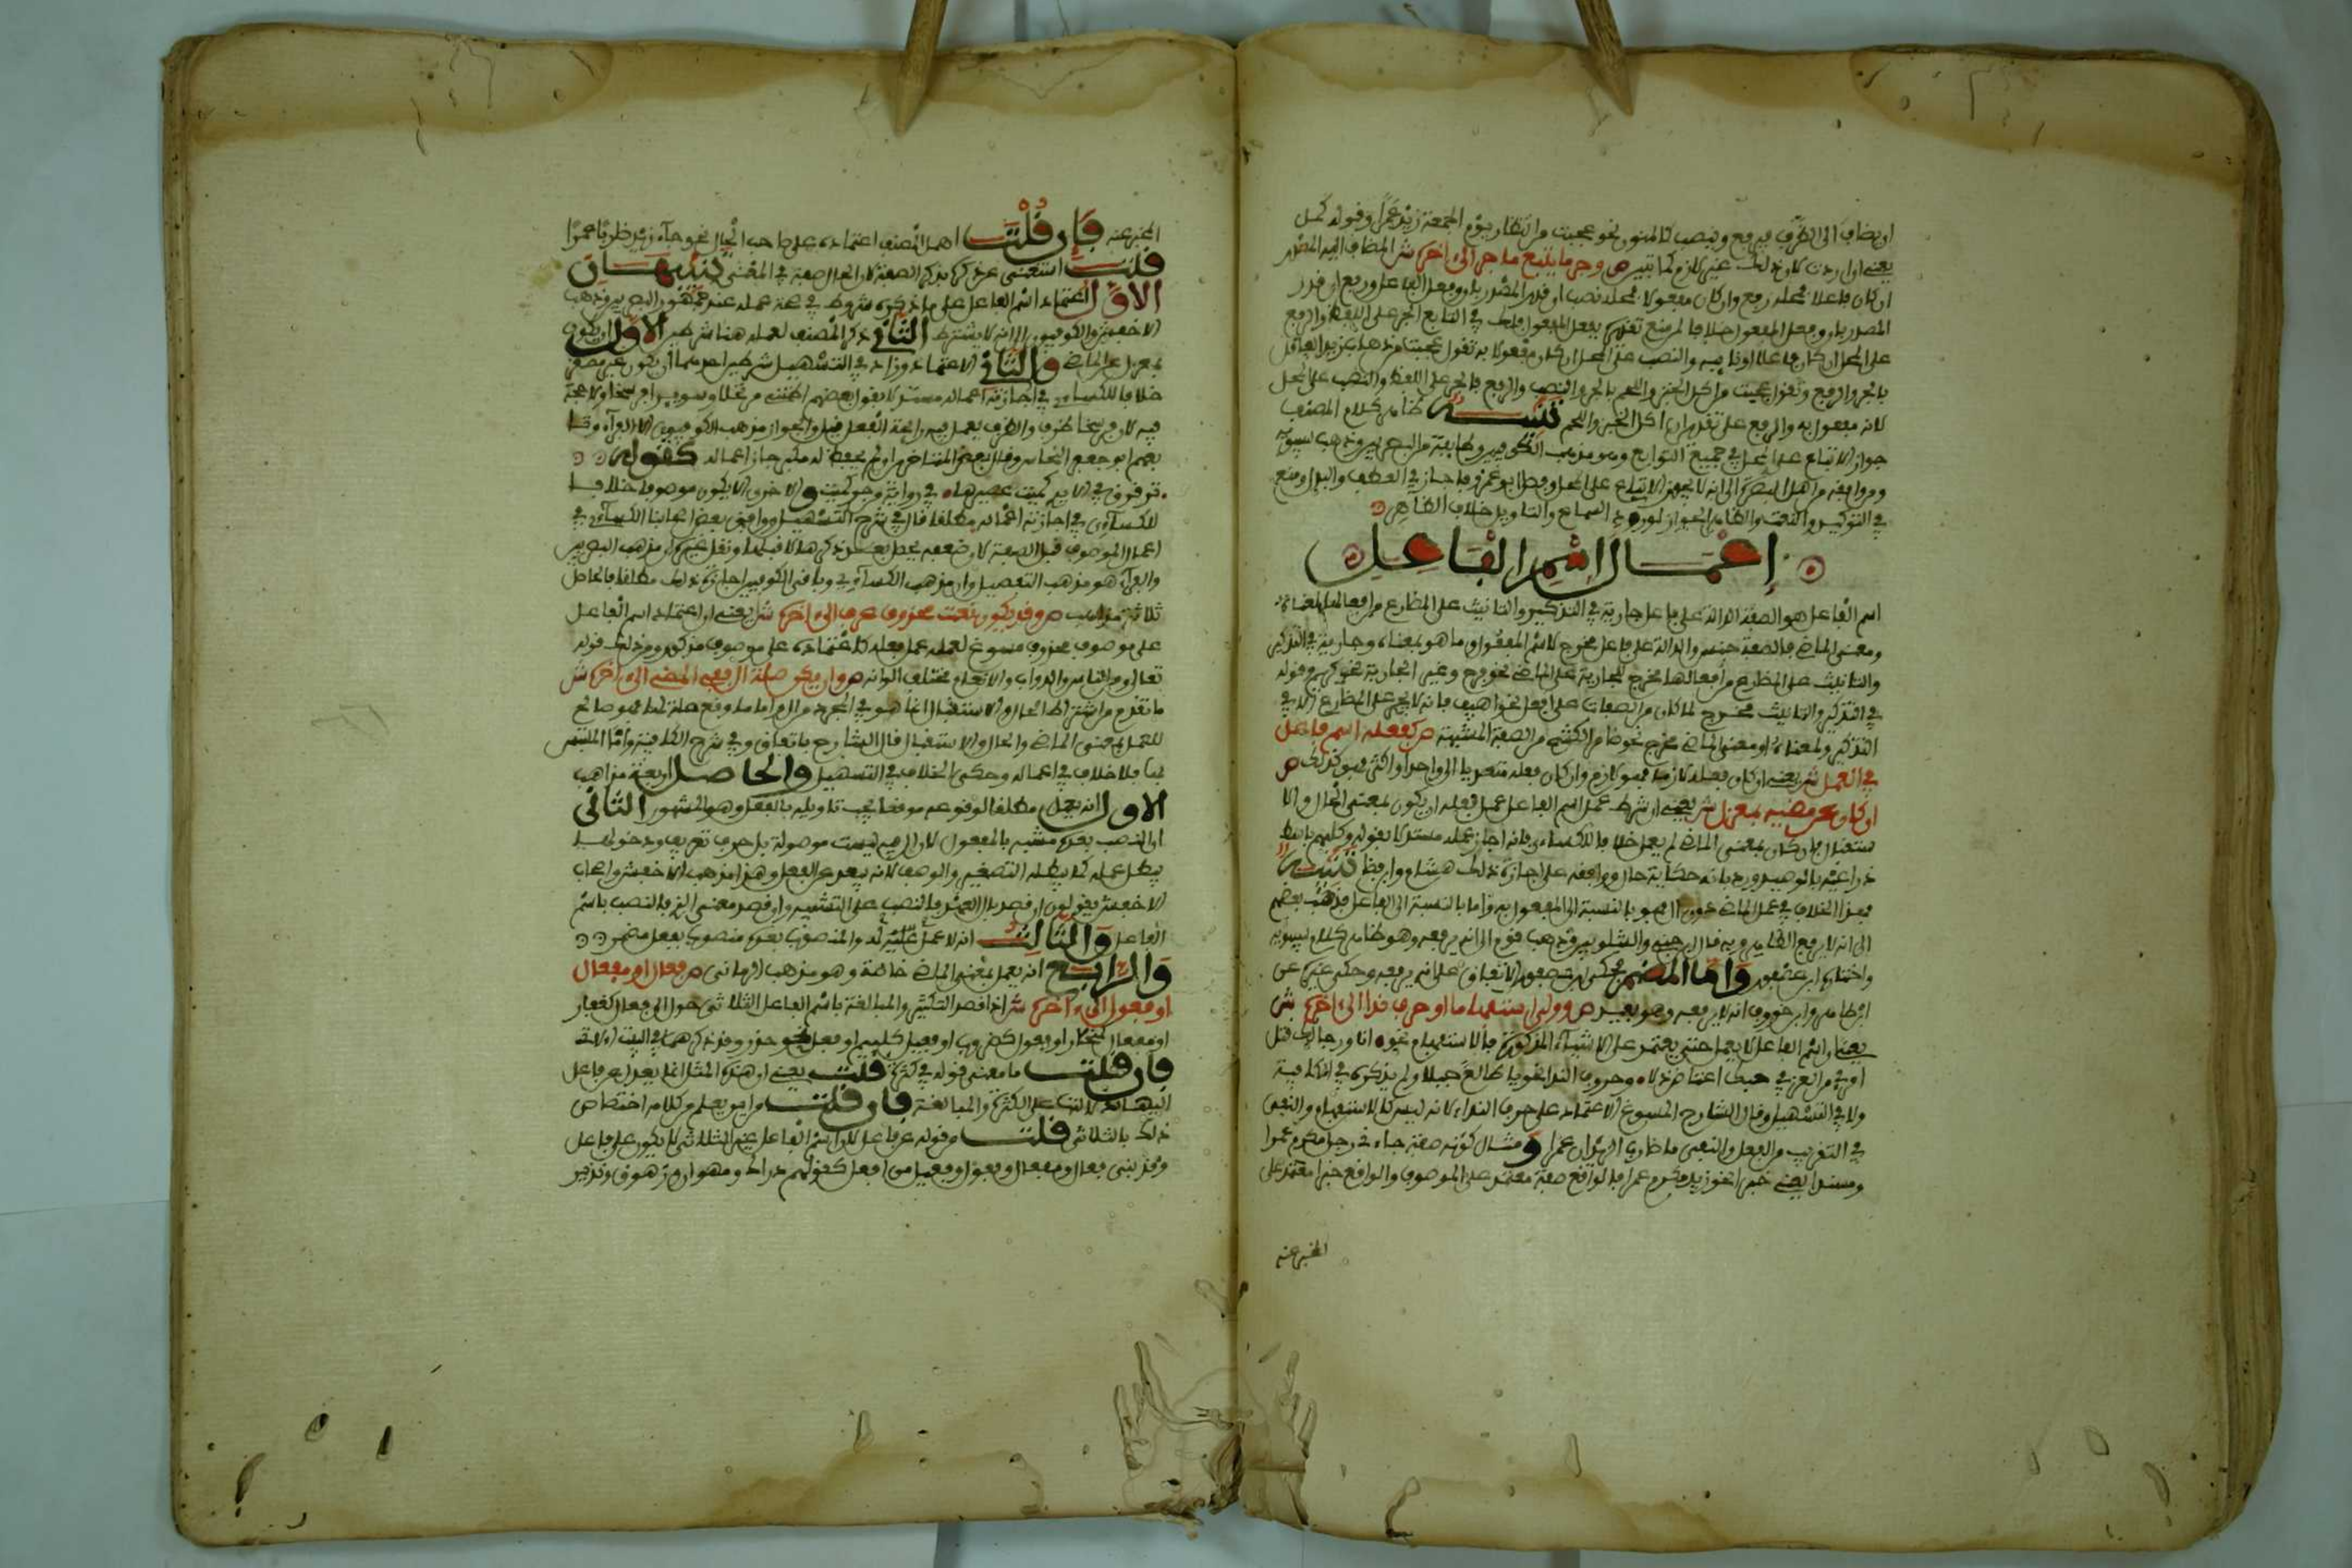 او يضاف الى الظرف فيرفع وينصب كالمنون نحو عجبت من انتظار يوم الجمعة زيد عمرا وقوله كمل
يعني ان اردت لان ذلك غير لازم كما تبين ص وجر ما يتبع ما جر الى اخره ش المضاف اليه المصدر
ان كان فاعلا فمحله رفع وان كان مفعولا فمحله نصب ان قدر المصدر بان وفعل الفاعل ورفع ان قدر
المصدر بان وفعل المفعول خلافا لمن منع تقديره بفعل المفعول فلك في التابع الجر على اللفظ والرفع
على المحل ان كان فاعلا او نائبه والنصب على المحل ان كان مفعولا به تقول عجبت من ضرب زيد العاقل
بالجر والرفع وتقول عجبت من اكل الخبز واللحم بالجر والنصب والرفع فالجر على اللفظ والنصب على المحل
لانه مفعول به والرفع على تقدير ان اكل الخبز واللحم تنبيه ظاهر كلام المصنف
جواز الاتباع على المحل في جميع التوابع وهو مذهب الكوفيين وطائفة من البصريين وذهب سيبويه
ومن وافقه من اهل البصرة الى انه لا يجوز الاتباع على المحل وفصل ابو عمرو فاجاز في العطف والبدل ومنع
في التوكيد والنعت والظاهر الجواز لورود السماع والتاويل خلاف الظاهر
إعمال اسم الفاعل
اسم الفاعل هو الصفة الدالة على فاعل جارية في التذكير والتانيث على المضارع من افعالها لمعناه
ومعنى الماضي فالصفة جنس والدالة على فاعل مخرج لاسم المفعول وما هو بمعناه وجارية في التذكير
والتانيث على المضارع من افعالها مخرج للجارية على الماضي نحو فرح وغير الجارية نحو كريم وقوله
في التذكير والتانيث مخرج لما كان من الصفات على افعل نحو اهيف فانه لا يجري على المضارع الا في
التذكير ولمعناه او معنى الماضي مخرج نحو ضامر الكشح من الصفة المشبهة ص كفعله اسم فاعل
في العمل ش يعني ان كان فعله لازما فهو لازم وان كان فعله متعديا الى واحد او اكثر فهو كذلك ص
ان كان عن مضيه بمعزل ش يعني ان شرط عمل اسم الفاعل عمل فعله ان يكون بمعنى الحال والا
ستقبال فان كان بمعنى الماضي لم يعمل خلافا للكسائي فانه اجاز عمله مستدلا بقوله وكلبهم باسط
ذراعيه بالوصيد ورد بانه حكاية حال ووافقه على اجازة ذلك هشام وابن مضا تنبيه
هذا الخلاف في عمل الماضي دون ال هو بالنسبة الى المفعول به واما بالنسبة الى الفاعل فذهب بعضهم
الى انه لا يرفع الظاهر وبه قال ابن جني والشلوبين وذهب قوم الى انه يرفعه وهو ظاهر كلام سيبويه
واختاره ابن عصفور واما المضمر فحكى ابن عصفور الاتفاق على انه يرفعه وحكى غيره عن
ابن طاهر وابن خروف انه لا يرفعه وهو بعيد ص وولي استفهاما او حرف ندا الى اخره ش
يعني ان اسم الفاعل لا يعمل حتى يعتمد على الاشياء المذكورة فالاستفهام نحو انا ورجالك قتل
امرئ من العز في حبك اعتاض ذلا وحروف الندا نحو يا طالعا جبلا ولم يذكره في الكافية
ولا في التسهيل وقال الشارح المسوغ الاعتماد على حرف النداء لانه ليس كالاستفهام والنفي
في التقريب من الفعل والنفي ما ضارب الزيدان عمرا ومثال كونه صفة جاءني رجل مكرم عمرا
ومسندا يعني خبرا نحو زيد مكرم عمرا فالواقع صفة معتمد على الموصوف والواقع خبرا معتمد على
المخبر عنه
المخبر عنه فإن قلت اهمل المصنف اعتماده على صاحب الحال نحو جاء زيد ضاربا عمرا
قلت استغنى عن ذكره بذكر الصفة لان الحال صفة في المعنى تنبيهان
الاول اعتماد اسم الفاعل على ما ذكره شرط في صحة عمله عند جمهور البصريين وذهب
الاخفش والكوفيون الى انه لا يشترط الثاني ذكر المصنف لعمله هنا شرطين الاول ان يكون
بمعزل عن الماضي والثاني الاعتماد وزاد في التسهيل شرطين احدهما ان يكون غير مصغر
خلافا للكسائي في اجازته اعماله مستدلا بقول بعضهم اظنني مرتحلا وسويرا فرسخا ولا حجة
فيه لان فرسخا ظرف والظرف يعمل فيه رائحة الفعل قيل والجواز مذهب الكوفيين الا الفراء وتا
بعهم ابو جعفر النحاس وقال بعض المتاخرين ان لم يحفظ له مكبر جاز اعماله كقوله
ترقرق في الايدي كميت عصيرها في رواية جر كميت والاخر ان لا يكون موصوفا خلافا
للكسائي في اجازته اعماله مطلقا قال في شرح التسهيل ووافق بعض اصحابنا الكسائي في
اعمال الموصوف قبل الصفة لان ضعفه يحصل بعد ذكرها لا قبلها ونقل غيره ان مذهب البصريين
والفراء هو مذهب التفصيل وان مذهب الكسائي وباقي الكوفيين اجازة ذلك مطلقا فالحاصل
ثلاثة مذاهب ص وقد يكون نعت محذوف عرف الى اخره ش يعني ان اعتماد اسم الفاعل
على موصوف محذوف مسوغ لعمله عمل فعله كاعتماده على موصوف مذكور ومن ذلك قوله
تعالى ومن الناس والدواب والانعام مختلف الوانه ص وان يكن صلة ال ففي المضي الى اخره ش
ما تقدم من اشتراط الحال والاستقبال انما هو في المجرد من ال واما ما وقع صلة لها فهو صالح
للعمل بمعنى الماضي والحال والاستقبال قال الشارح باتفاق وفي شرح الكافية واما الملتبس
بها فلا خلاف في اعماله وحكى الخلاف في التسهيل والحاصل اربعة مذاهب
الاول انه يعمل مطلقا لوقوعه موقعا يجب تاويله بالفعل وهو المشهور الثاني
ان النصب بعده مشبه بالمفعول لان ال فيه ليست موصولة بل حرف تعريف ودخولها
يبطل عمله كما يبطله التصغير والوصف لانه يبعد عن الفعل وهذا مذهب الاخفش واصحاب
الاخفش يقولون ان قصد بال العهد فالنصب على التشبيه وان قصد معنى الذي فالنصب باسم
الفاعل والثالث انه لا عمل له والمنصوب بعده منصوب بفعل مضمر
والرابع انه يعمل بمعنى الماضي خاصة وهو مذهب الرماني ص فعال او مفعال
او فعول الى اخره ش اذا قصد التكثير والمبالغة باسم الفاعل الثلاثي حول الى فعال كغفار
او مفعال كمنحار او فعول كضروب او فعيل كعليم او فعل نحو حذر وقد ذكرهما في البيت الاتي
فان قلت ما معنى قوله في كثرة قلت يعني ان هذه المثل انما يعدل عن فاعل
اليها للدلالة على الكثرة والمبالغة فان قلت من اين يعلم من كلامه اختصاص
ذلك بالثلاثي قلت من قوله عن فاعل لان اسم الفاعل غير الثلاثي لا يكون على فاعل
وقد بنى فعال ومفعال وفعول وفعيل من افعل كقولهم دراك ومهوان وزهوق ونذير